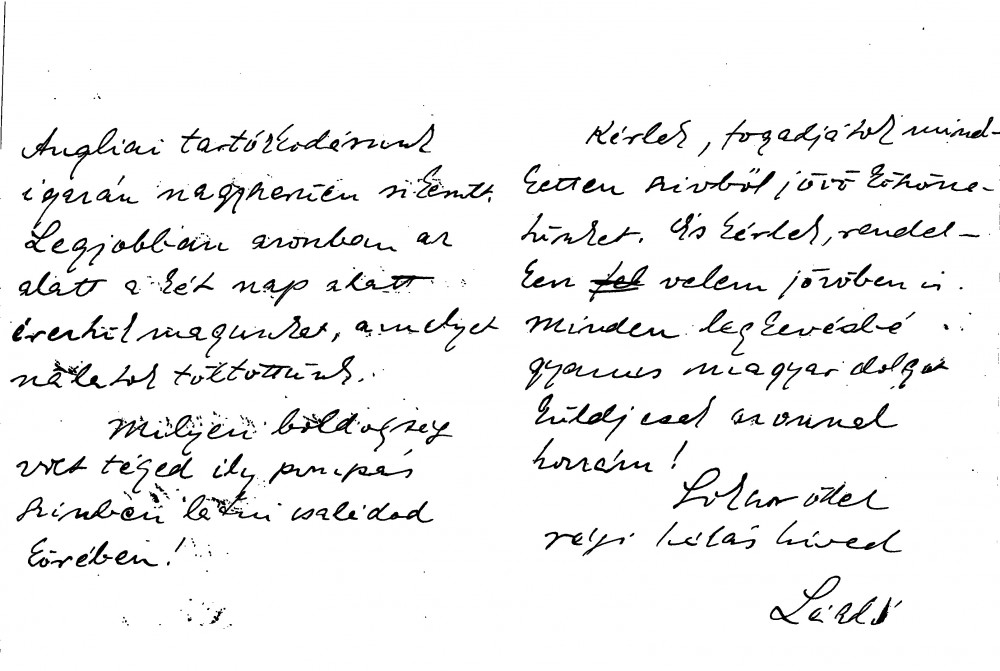 Angliai tartózkodásunk
igazán nagyszerűen sikerült.
Legjobban azonban az
alatt a két nap alatt
éreztük magunkat, amelyet
nálatok töltöttünk.
Milyen boldogság
volt téged ily pompás
színben látni családod
körében!
Kérlek, fogadjátok mind-
ketten szivből jövő köszöne-
tünket. És kérlek, rendel-
kezz fel velem jövőben is.
Minden legkevésbé
gyanus magyar dolgot
küldj csak azonnal
hozzám!
Sokszor ölel
régi hálás hived
László